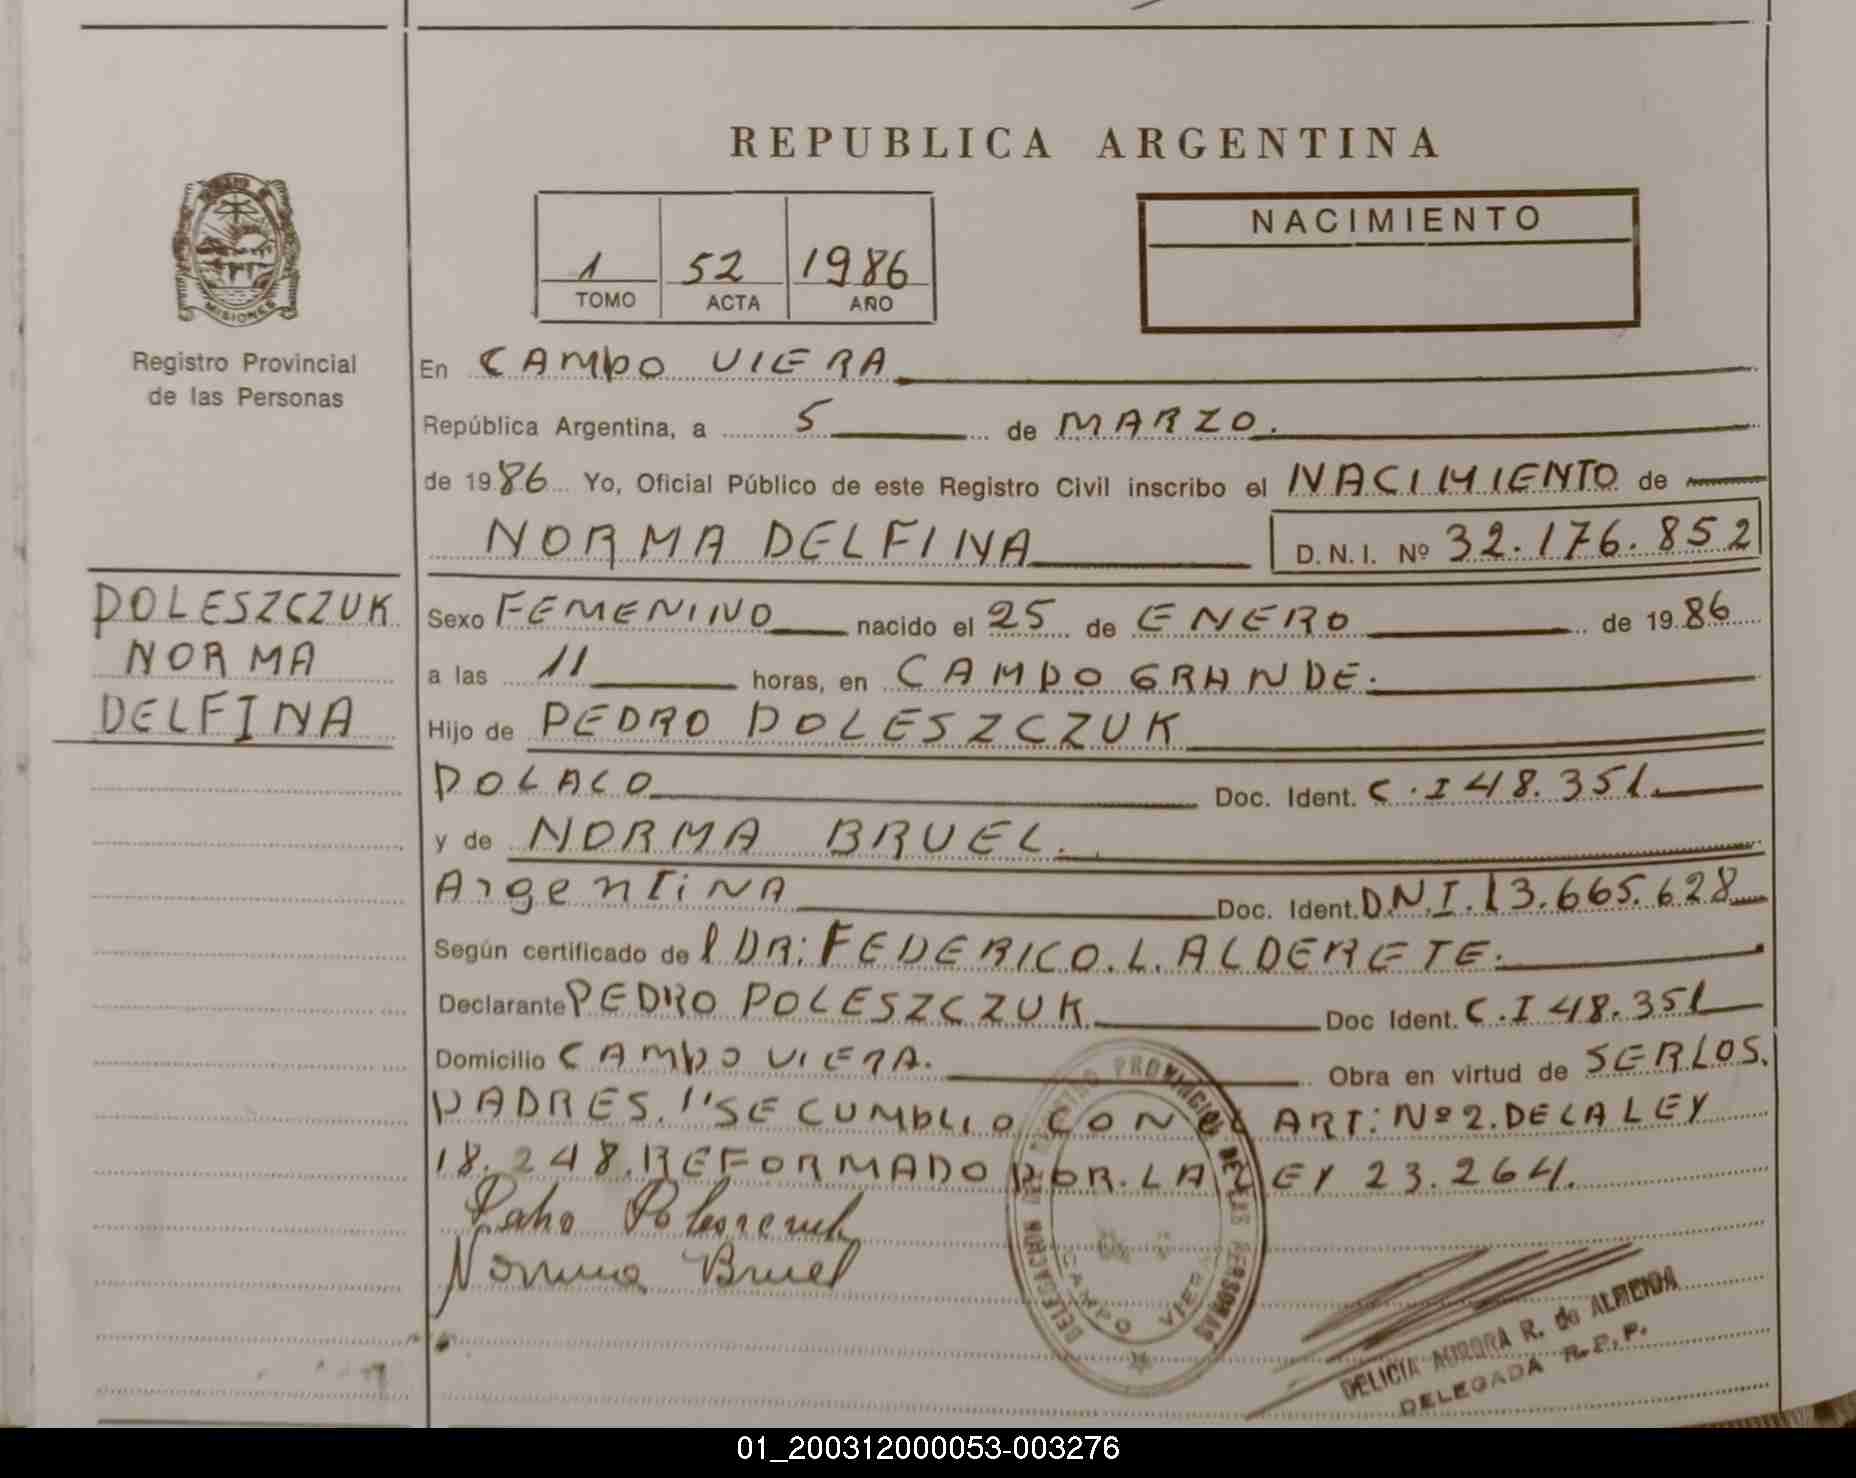 REPUBLICA ARGENTINA
NACIMIENTO
1 52 1986
TOMO ACTA AÑO
MISIONES
Registro Provincial
de las Personas
En CAMPO VIERA
República Argentina, a 5 de MARZO.
de 1986 Yo, Oficial Público de este Registro Civil inscribo el NACIMIENTO de
NORMA DELFINA D.N.I. Nº 32.176.852
POLESZCZUK
NORMA
DELFINA
Sexo FEMENINO nacido el 25 de ENERO de 1986
a las 11 horas, en CAMPO GRANDE.
Hijo de PEDRO POLESZCZUK
POLACO Doc. Ident. C.I 48.351.
y de NORMA BRUEL.
ArgentiNA Doc. Ident. D.N.I. 13.665.628
Según certificado de l DR: FEDERICO.L.ALDERETE.
Declarante PEDRO POLESZCZUK Doc Ident. C.I 48.351
Domicilio CAMPO VIERA. Obra en virtud de SERLOS.
PADRES. "SE CUMPLIO CON EL ART: Nº 2. DE LA LEY
18.248. REFORMADO POR. LA LEY 23.264.
Norma Bruel
DELEGACION DEL REGISTRO PROVINCIAL DE LAS PERSONAS
CAMPO VIERA
DELICIA AURORA R. de ALMEIDA
DELEGADA R.P.P.
01_200312000053-003276